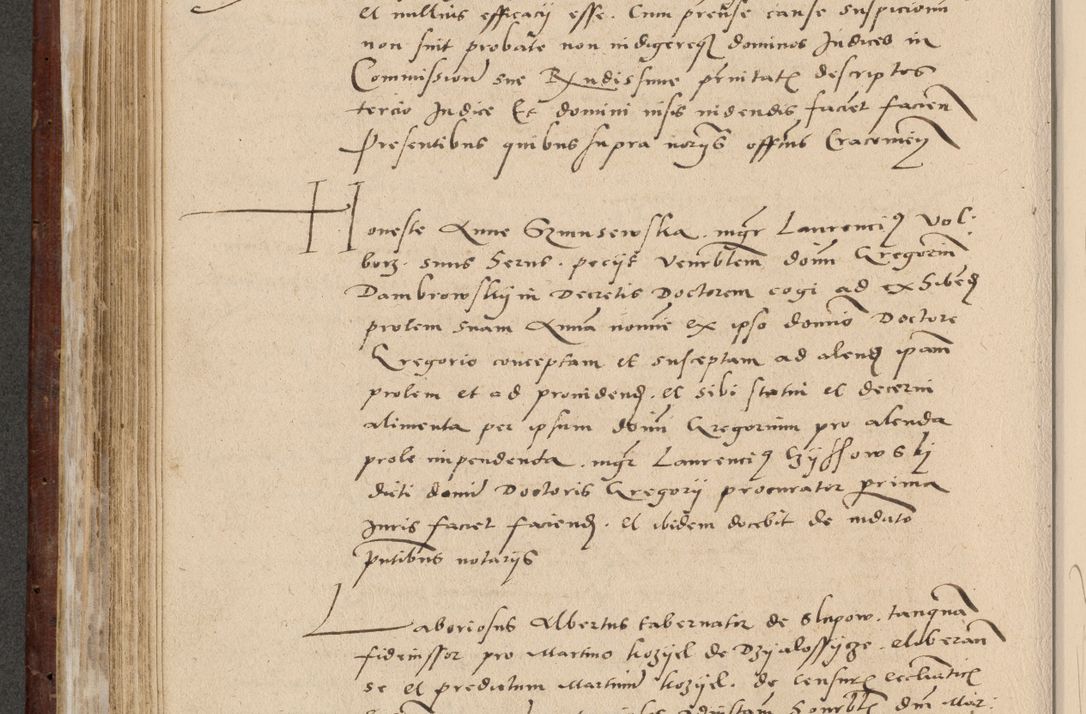 et nullius efficacij esse. Cum preuse cause suspicionum
non sint probate non indigereqȝ dominos Judices in
Commissione sue Rndissime prnitatis descriptos
tercio Judice Et domini visis videndis facient facien
Presentibus quibus supra norijs officijs Cracouien
Honeste Anne Szmusewska. mgr Laurencius Vol:
borz. suus Seruus. pecijt venerblem domi Gregorium
Dambrowskij in Decretis Doctorem cogi ad exhibend
prolem suam Annam nomine ex ipso domino Doctore
Gregorio conceptam et susceptam ad alend ipam
prolem et ad prouidend. et sibi statui et decerni
alimenta per ipsum domi Gregorium pro alenda
prole impendenda. mgr Laurencius
dicti domi Doctoris Gregorij procurator prima
Juris faciet faciend. et ibidem docebit de mdato
Pntibus notarijs
Laboriosus Albertus tabernator de Slupow. tanquam
fideiussor pro Martino Kozijel de Dzijalossijcze. et liberan
se et predictum Martinum Kozijel. de censuris eccliasticis